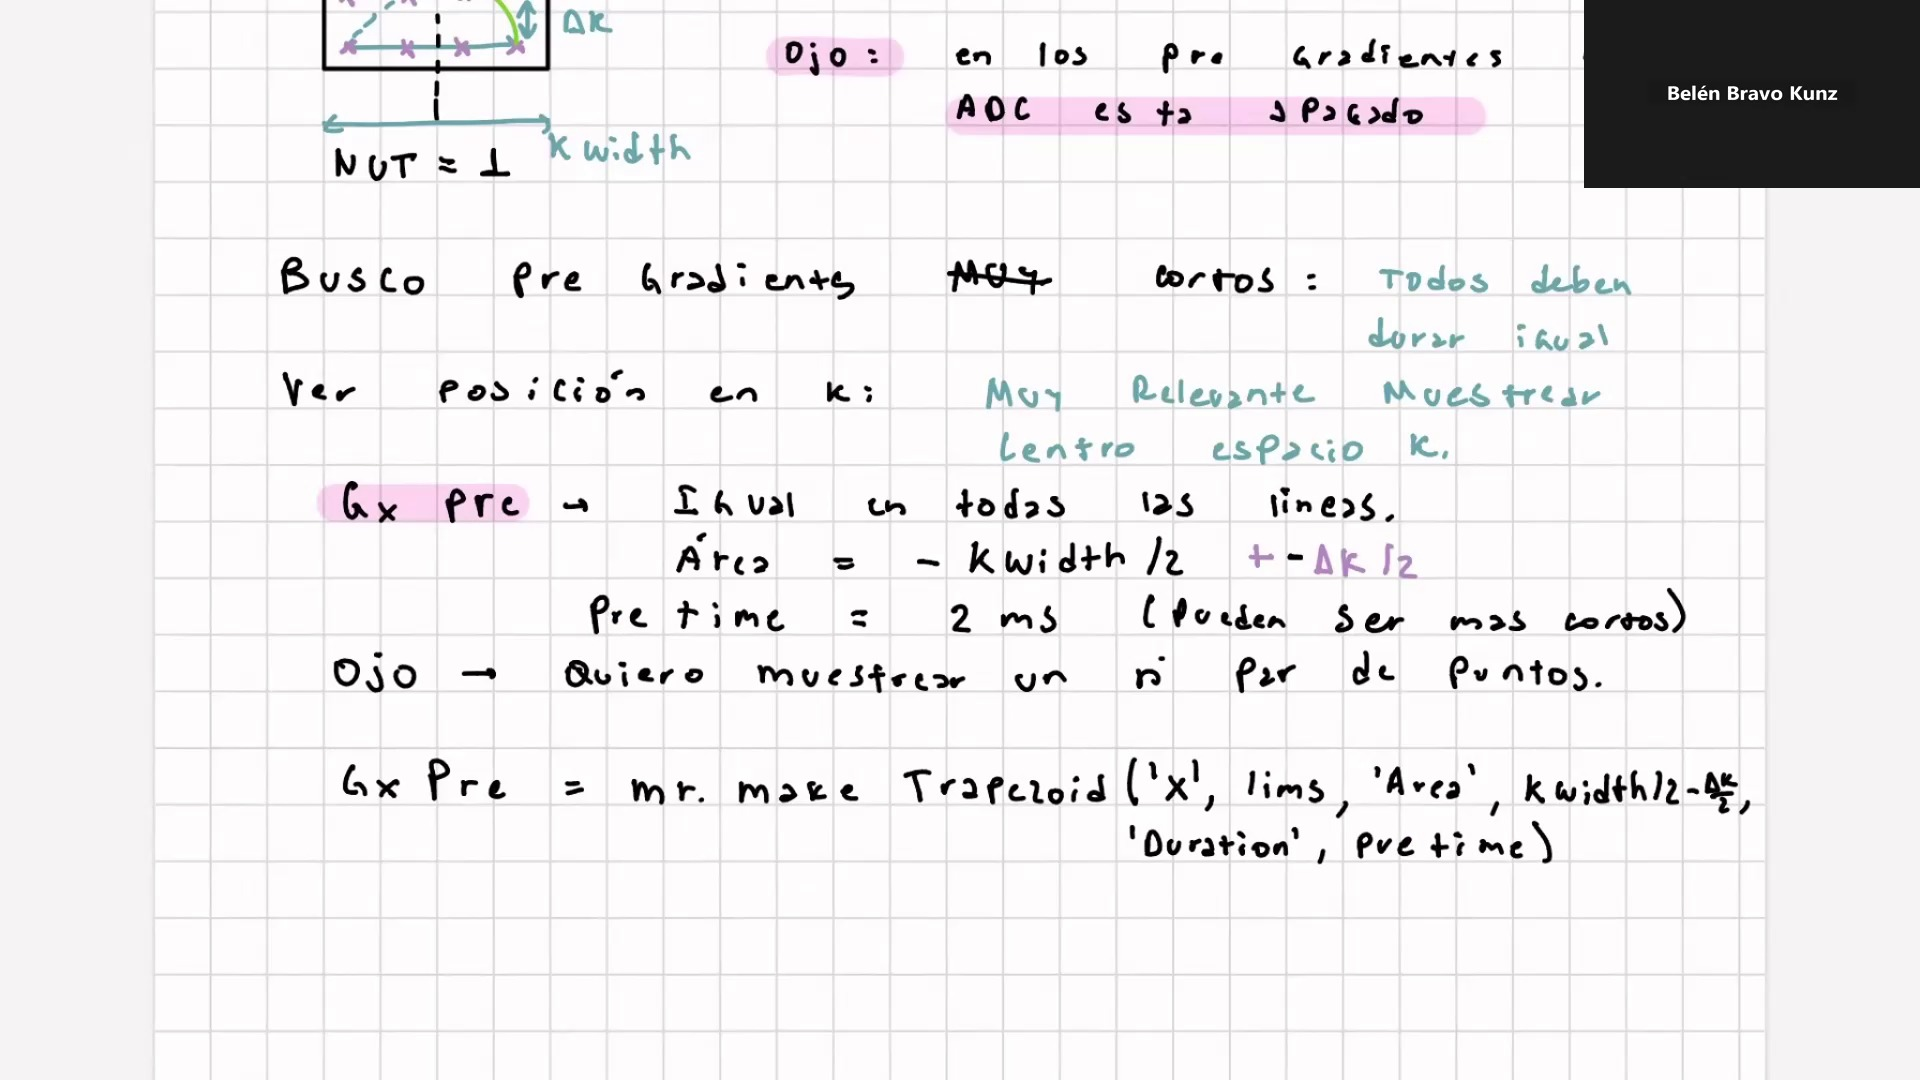 ΔK
Ojo: en los pre Gradientes
ADC esta apagado
K width
NUT ≈ 1
Busco Pre Gradientes Muy cortos: Todos deben
durar igual
Ver posición en k: Muy Relevante Muestrear
Centro espacio K.
Gx Pre → Igual en todas las lineas.
Área = - Kwidth/2 + - ΔK/2
Pre time = 2 ms (Pueden ser mas cortos)
Ojo → Quiero muestrear un n̄ par de puntos.
Gx Pre = mr. make Trapezoid ('x', lims, 'Area', Kwidth/2 - ΔK/2,
'Duration', pretime)
Belén Bravo Kunz